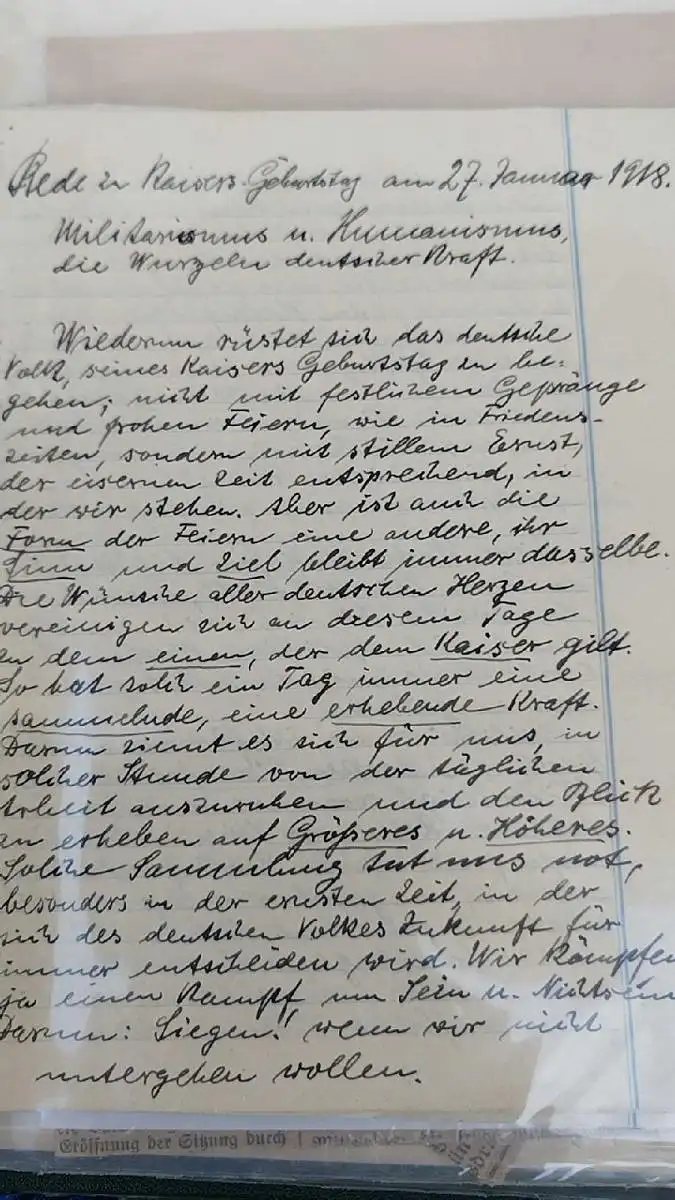 Rede zu Kaisers-Geburtstag am 27. Januar 1918.
Militarismus u. Humanismus,
die Wurzeln deutscher Kraft.
Wiederum rüstet sich das deutsche
Volk, seines Kaisers Geburtstag zu be-
gehen; nicht mit festlichem Gepränge
und frohen Feiern, wie in Friedens-
zeiten, sondern mit stillem Ernst,
der eisernen Zeit entsprechend, in
der wir stehen. Aber ist auch die
Form der Feiern eine andere, ihr
Sinn und Ziel bleibt immer dasselbe.
Die Wünsche aller deutschen Herzen
vereinigen sich an diesem Tage
in dem einen, der dem Kaiser gilt.
So hat solch ein Tag immer eine
sammelnde, eine erhebende Kraft.
Darum ziemt es sich für uns, in
solcher Stunde von der täglichen
Arbeit auszuruhen und den Blick
zu erheben auf Größeres u. Höheres.
Solche Sammlung tut uns not,
besonders in der ernsten Zeit, in der
sich des deutschen Volkes Zukunft für
immer entscheiden wird. Wir kämpfen
ja einen Kampf um Sein u. Nichtsein
Darum: Siegen! wenn wir nicht
untergehen wollen.
Eröffnung der Sitzung durch